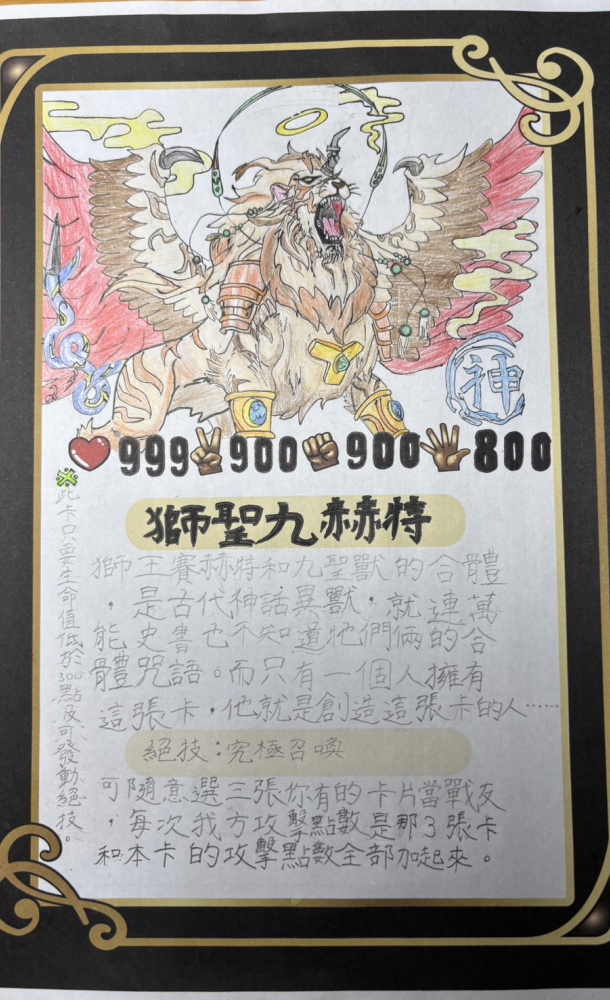 神
999 900 900 800
獅聖九赫特
獅王賽赫特和九聖獸的合體
，是古代神話異獸，就連萬
能史書也不知道牠們倆的合
體咒語。而只有一個人擁有
這張卡，他就是創造這張卡的人⋯⋯
絕技：究極召喚
可隨意選三張你有的卡片當戰友
，每次我方攻擊點數是那3張卡
和本卡的攻擊點數全部加起來。
※此卡只要生命值低於300點及可發動絕技。